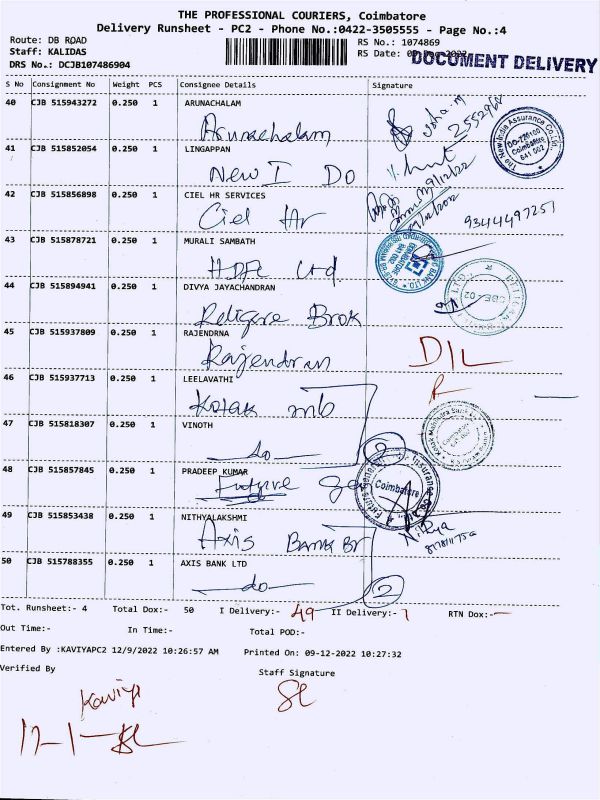 THE PROFESSIONAL COURIERS, Coimbatore
Delivery Runsheet - PC2 - Phone No.:0422-3505555 - Page No.:4
Route: DB ROAD
Staff: KALIDAS
DRS No.: DCJB107486904
RS No.: 1074869
RS Date:
DOCUMENT DELIVERY
S No Consignment No Weight PCS Consignee Details Signature
40 CJB 515943272 0.250 1 ARUNACHALAM
Arunachalam
41 CJB 515852054 0.250 1 LINGAPPAN
New I Do
The New India Assurance Co. Ltd.
DO-776100
Coimbatore
641 002
42 CJB 515856898 0.250 1 CIEL HR SERVICES
Ciel Hr
9344497251
43 CJB 515878721 0.250 1 MURALI SAMBATH
HDFC Ltd.
44 CJB 515894941 0.250 1 DIVYA JAYACHANDRAN
Religere Brok
45 CJB 515937809 0.250 1 RAJENDRNA
Rajendran
D/L
46 CJB 515937713 0.250 1 LEELAVATHI
Kotak mb
47 CJB 515818307 0.250 1 VINOTH
do
2
48 CJB 515857845 0.250 1 PRADEEP KUMAR
Coimbatore
49 CJB 515853438 0.250 1 NITHYALAKSHMI
Axis Bank Br
Nithya
50 CJB 515788355 0.250 1 AXIS BANK LTD
do
2
Tot. Runsheet:- 4 Total Dox:- 50 I Delivery:- 49 II Delivery:- 1 RTN Dox:-
Out Time:- In Time:- Total POD:-
Entered By :KAVIYAPC2 12/9/2022 10:26:57 AM Printed On: 09-12-2022 10:27:32
Verified By Staff Signature
Kaviya